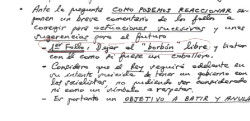 • Ante la pregunta COMO PODEMOS REACCIONAR se
ponen un breve comentario de los fallos a
corregir para actuaciones sucesivas y unas
sugerencias para el futuro
1er Fallo: Dejar al "borbón" libre y tratar
con él como si fuese un caballero.
• Considero que el Rey seguirá adelante en
su intento suicida de tener un gobierno con
los socialistas, no pudiendo ser considerado
ni como un símbolo a respetar.
• Es por tanto un OBJETIVO A BATIR Y ANULA